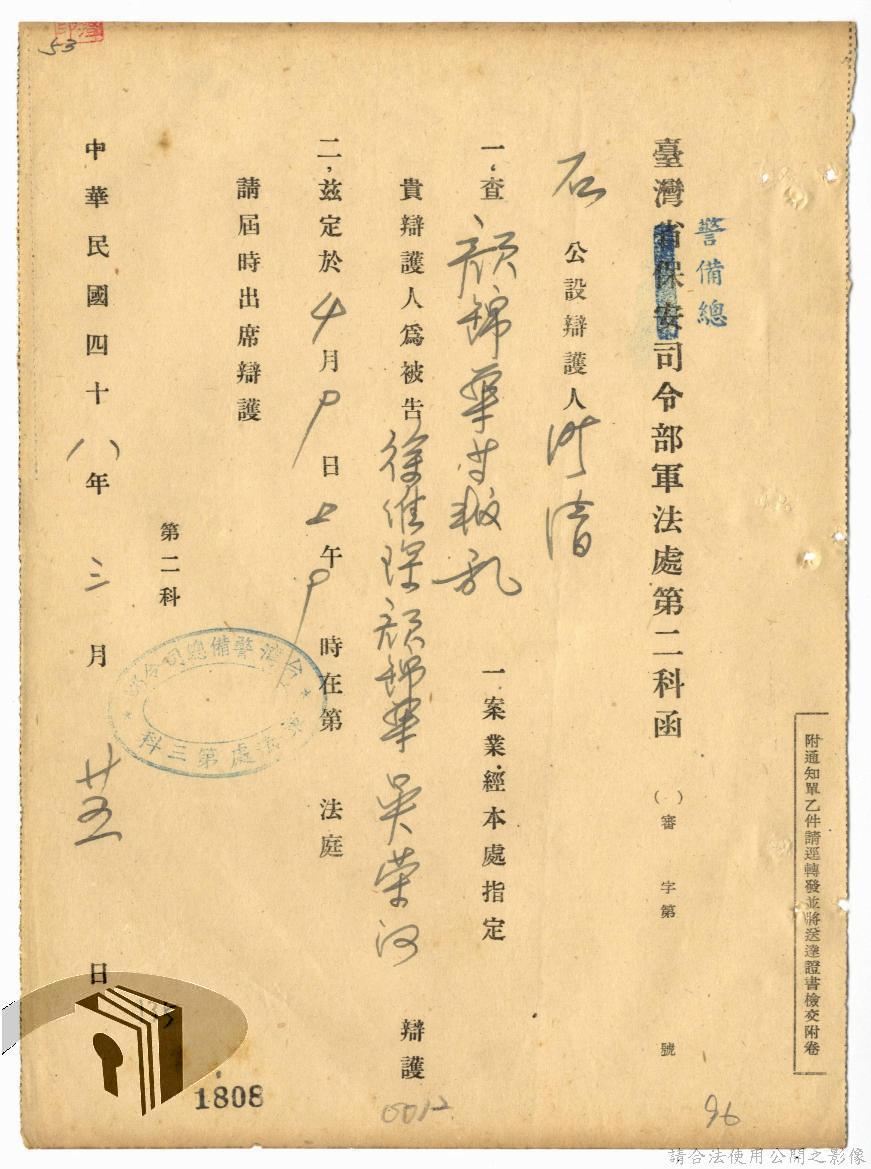 附通知單乙件請逕轉發並將送達證書檢交附卷
警備總
臺灣省保安司令部軍法處第二科函
( )審 字第 號
石 公設辯護人
一、查 顏錦華等叛乱 一案業經本處指定
貴辯護人為被告 顏錦華 吳荣河 辯護
二、茲定於 4 月 日 上 午 時在第 法庭
請屆時出席辯護
第二科
台灣警備總司令部
軍法處第三科
中華民國四十八年 三 月 日
53
1808
0012
96
請合法使用公開之影像